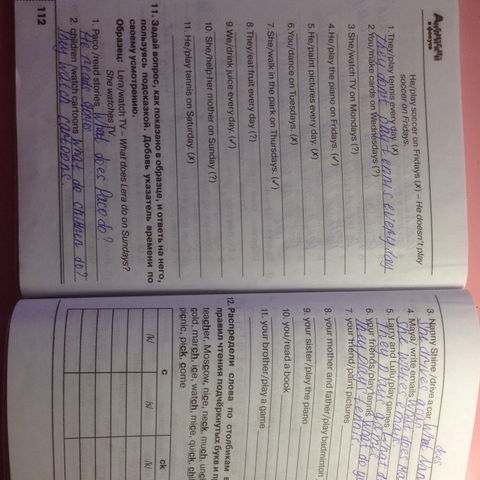 Английский
в фокусе
He/play soccer on Fridays (✗) – He doesn't play
soccer on Fridays.
1. They/play tennis every day. (✗)
They don't play tennis every day.
2. You/make cards on Wednesdays (?)
3. She/watch TV on Mondays (?)
4. He/play the piano on Fridays. (✓)
5. He/paint pictures every day. (✗)
6. You/dance on Tuesdays. (✗)
7. She/walk in the park on Thursdays. (✓)
8. They/eat fruit every day (?)
9. We/drink juice every day. (✓)
10. She/help her mother on Sunday (?)
11. He/play tennis on Saturday. (✗)
11. Задай вопрос, как показано в образце, и ответь на него,
пользуясь подсказкой. Добавь указатель времени по
своему усмотрению.
Образец: Lera/watch TV – What does Lera do on Sundays?
She watches TV.
1. Paco /read stories What does Paco do?
He reads
2. children /watch cartoons What do children do?
They watch cartoons.
112
3. Nanny Shine /drive a car What does
She drives
4. Maya/ write emails What
5. Larry and Lulu/play games
They play
6. your friends/play tennis
They play tennis
7. your friend/paint pictures
8. your mother and father/play badminton
9. your sister/play the piano
10. you/read a book
11. your brother/play a game
12. Распредели слова по столбикам в
правил чтения подчёркнутых букв и
teacher, Moscow, nice, neck, much, uncl
cold, march, ice, watch, mice, quick, chi
picnic, pick, come
c
ck
[k]
[s]
[k]